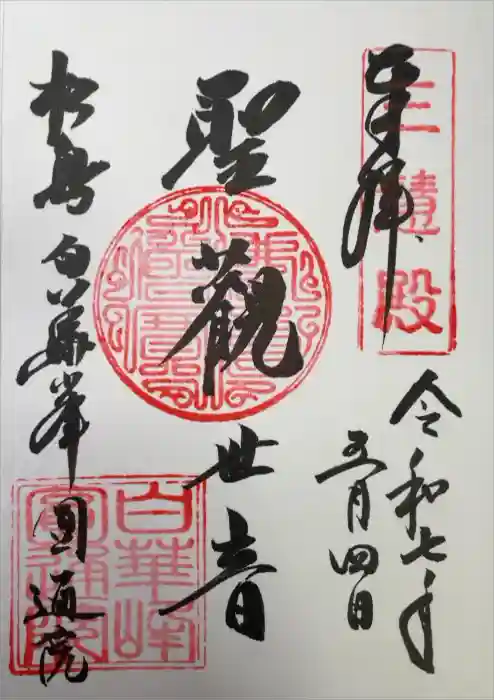 奉拝
三慧殿
令和七年
五月四日
聖觀世音
松島白華峯圓通院
白華峰
圓通院